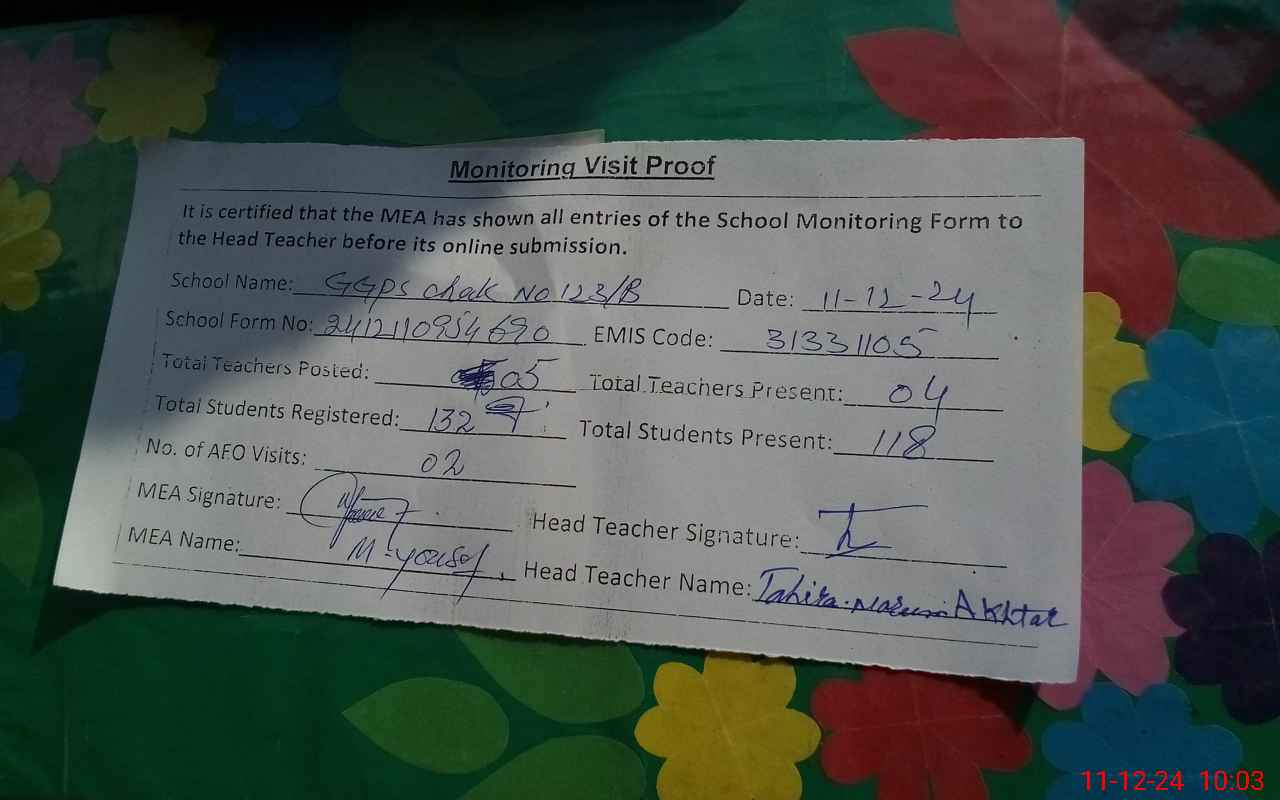 Monitoring Visit Proof
It is certified that the MEA has shown all entries of the School Monitoring Form to
the Head Teacher before its online submission.
School Name: GGPS Chak No 123/B Date: 11-12-24
School Form No: 2412110954690 EMIS Code: 31331105
Total Teachers Posted: 05 Total Teachers Present: 04
Total Students Registered: 132 Total Students Present: 118
No. of AEO Visits: 02
MEA Signature: Head Teacher Signature:
MEA Name: M-yousaf Head Teacher Name: Tahira Akhtar
11-12-24 10:03